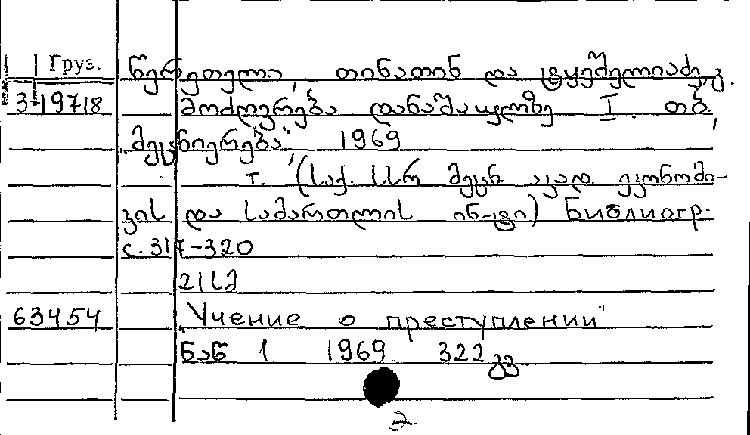 Груз. წერეთელი, თინათინ და ტყეშელიაძე გ.
3-19718 მოძღვრება დანაშაულზე I. თბ.,
„მეცნიერება“, 1969
т. (საქ. სსრ მეცნ. აკად. ეკონომი-
კის და სამართლის ინ-ტი) Библиогр.
с. 317-320
63454 „Учение о преступлении"
ნაწ 1 1969 322 გვ
2